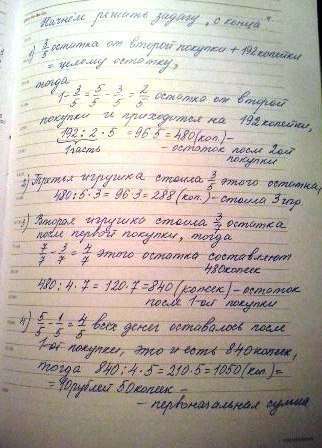 Начнём решать задачу "с конца"
1) 3/5 остатка от второй покупки + 192 копейки
= целому остатку,
тогда
1 - 3/5 = 5/5 - 3/5 = 2/5 остатка от второй
покупки и приходится на 192 копейки,
192 : 2 · 5 = 96 · 5 = 480 (коп.) -
1 часть - остаток после 2ой
покупки
2) Третья игрушка стоила 3/5 этого остатка,
480 : 5 · 3 = 96 · 3 = 288 (коп.) - стоила 3 игр.
3) Вторая игрушка стоила 3/7 остатка
после первой покупки, тогда
7/7 - 3/7 = 4/7 этого остатка составляют
480 копеек
480 : 4 · 7 = 120 · 7 = 840 (копеек) - остаток
после 1-ой покупки
4) 5/5 - 1/5 = 4/5 всех денег оставалось после
1-ой покупки, это и есть 840 копеек,
тогда 840 : 4 · 5 = 210 · 5 = 1050 (коп.) =
= 10 рублей 50 копеек -
- первоначальная сумма